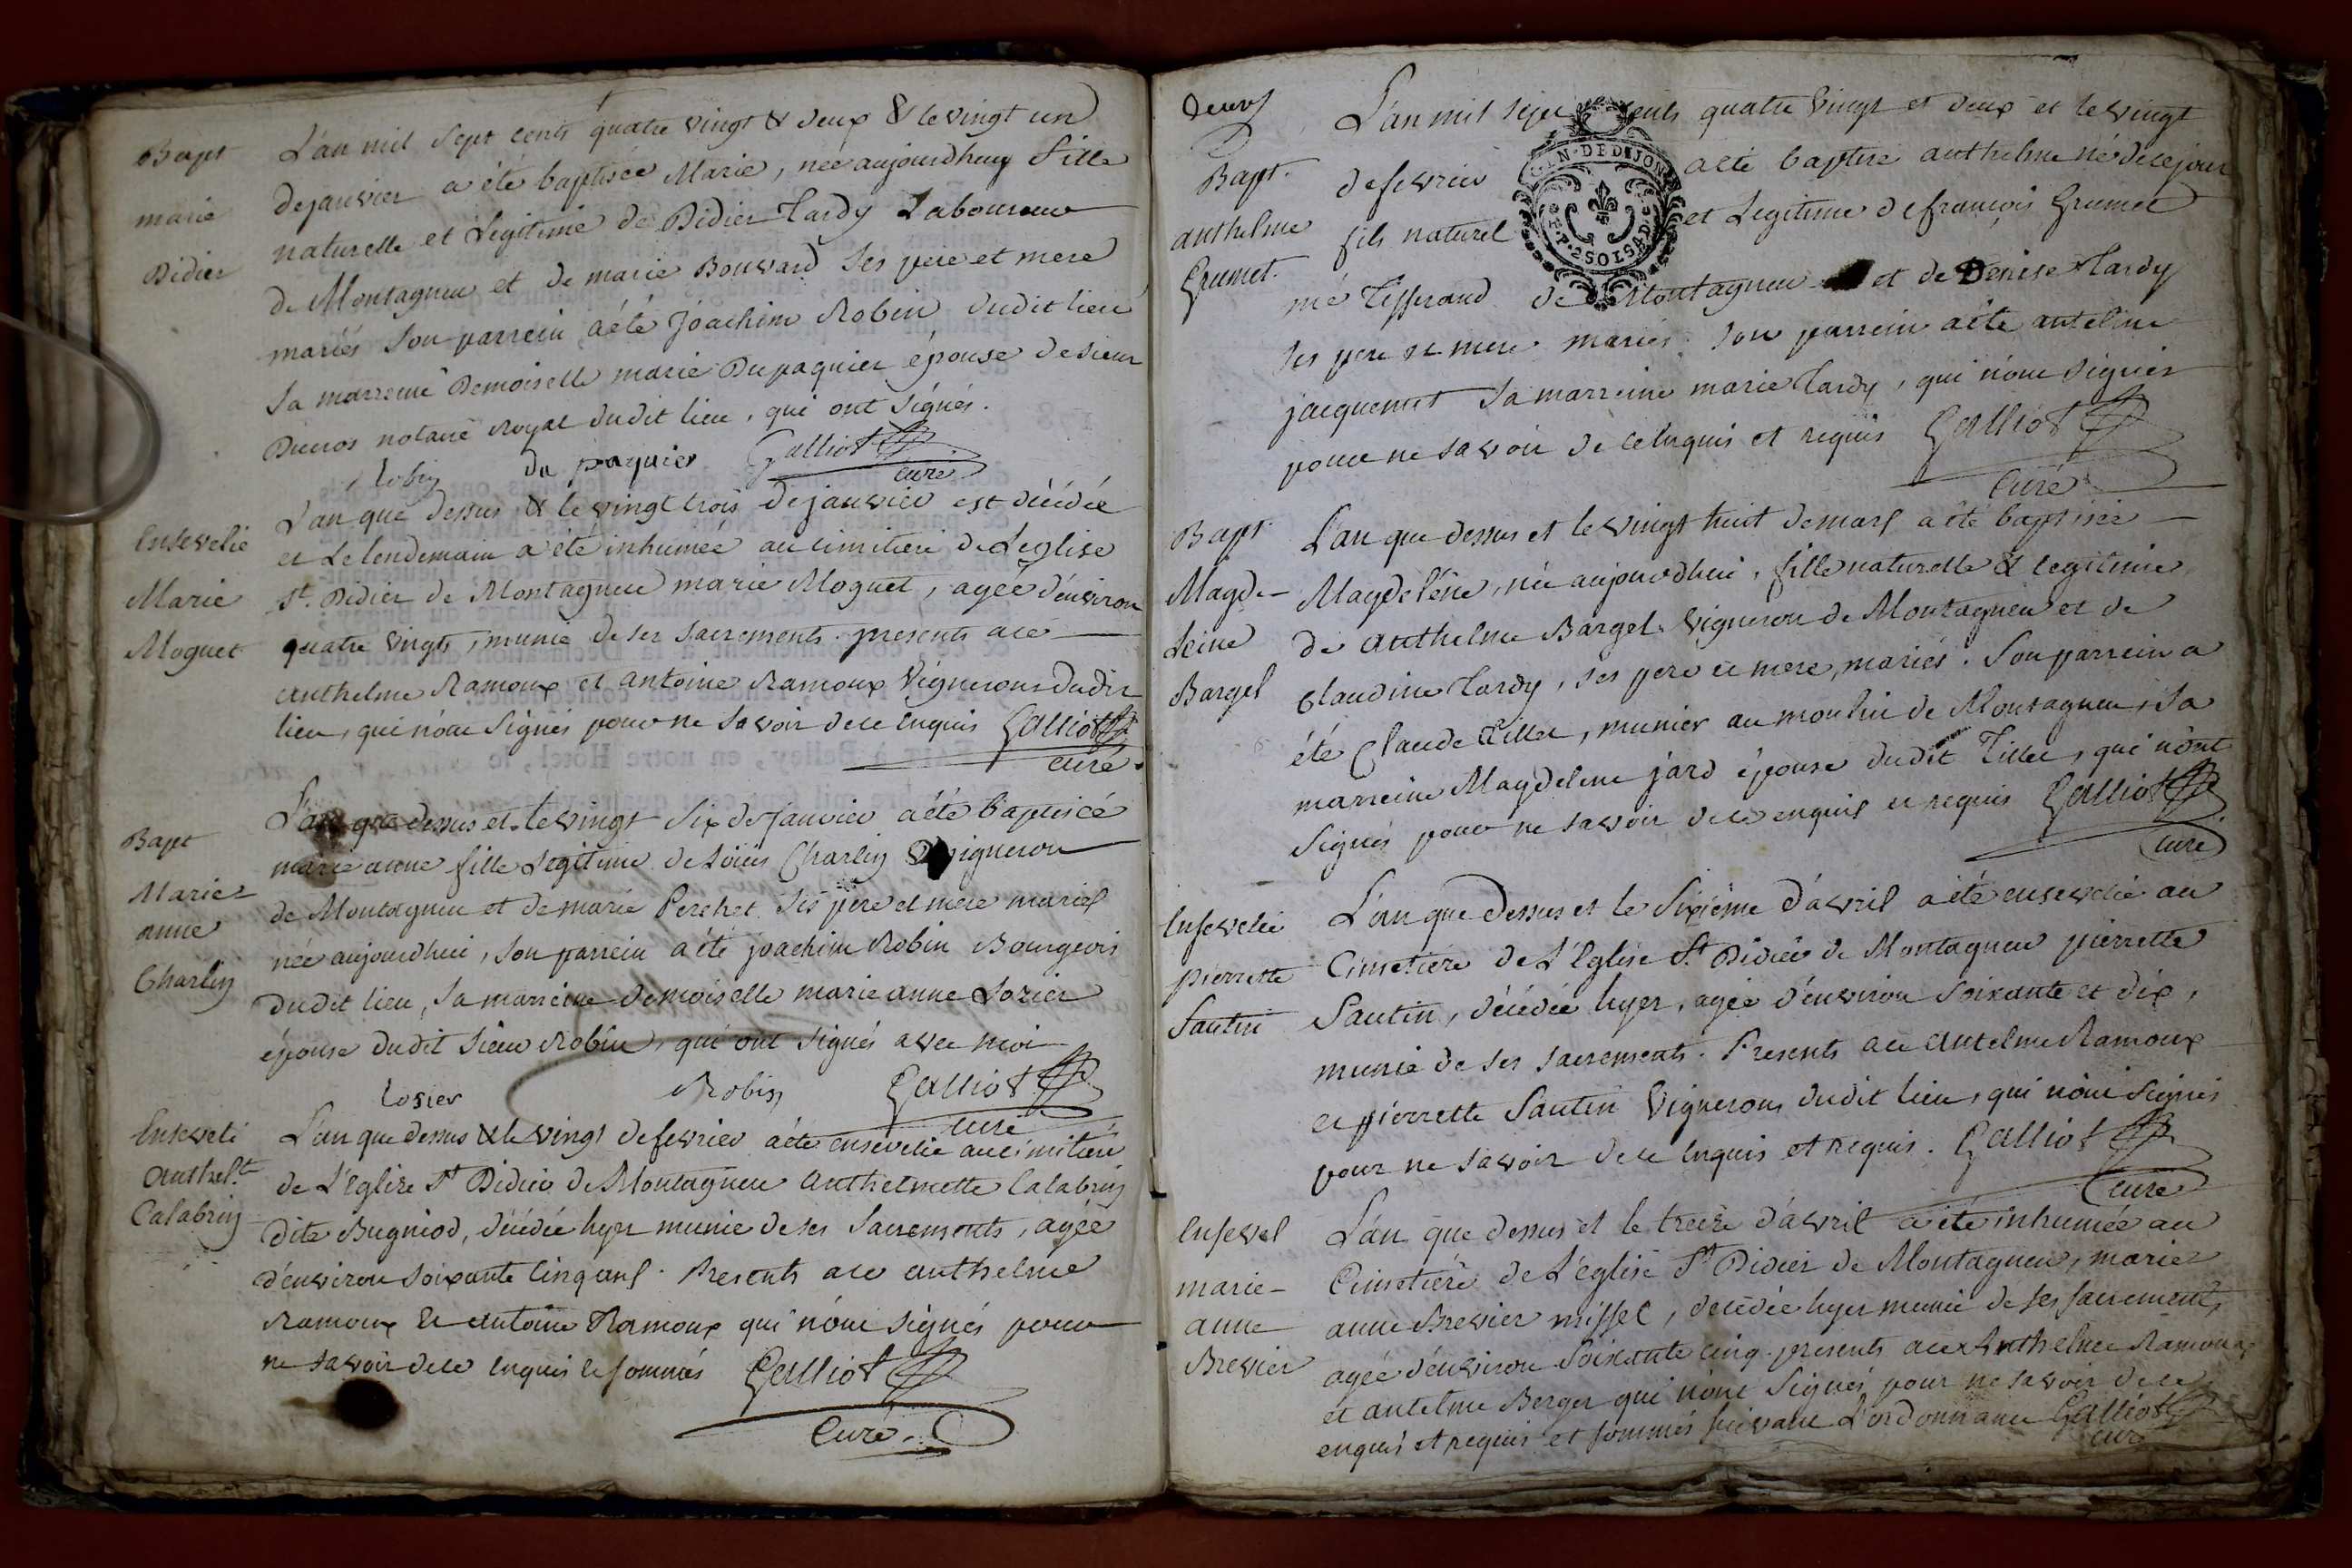 Bapt
marie
Didier
L'an mil sept cents quatre vingt & deux & le vingt un
de janvier a été baptisée Marie, née aujourdhuy fille
naturelle et Légitime de Didier Tardy Laboureur
de Montagneu et de marie Bouvard ses pere et mere
mariés son parrein a été Joachim Robin dudit lieu
sa marreine Demoiselle marie Dupaquier épouse de sieur
Ducros notaire Royal dudit lieu, qui ont signés.
Robin du paquier Galliot
curé
Ensevelie
Marie
Moguet
L'an que dessus & le vingt trois de janvier est décédée
et le lendemain a été inhumée au cimitiere de L'eglise
St. Didier de Montagneu marie Moguet, agée d'environ
quatre vingts, munie de ses sacrements. presents ace
anthelme Ramoux et antoine Ramoux vignerons dudit
lieu, qui n'ont signés pour ne savoir de ce enquis Galliot
curé.
Bapt
Marie
anne
Charlin
L'an que dessus et le vingt six de janvier a été baptisée
marie anne fille Legitime de Loüis Charlin vigneron
de Montagneu et de marie Perchet ses pere et mere mariés
née aujourdhui, son parrein a été joachim Robin Bourgeois
dudit lieu, sa marreine demoiselle marie anne Lozier
épouse dudit sieur Robin, qui ont signés avec moi
Losier Robin Galliot
curé
Enseveli
Anthel.te
Calabrin
L'an que dessus & le vingt de fevrier a été ensevelie au cimitiere
de L'église St Didier de Montagneu Anthelmette Calabrin
dite Bugniod, décédée hyer munie de ses sacrements, agée
d'environ soixante cinq ans. Presents ace anthelme
Ramoux & antoine Ramoux qui n'ont signés pour
ne savoir de ce enquis & sommés Galliot
Curé.
Deux
Bapt.
anthelme
Grumet.
L'an mil sept cents quatre vingt et deux et le vingt
de fevrier a été baptisé anthelme né de ce jour
fils naturel et Legitime de françois Grumet
GEN. DE DIJON
2 SOLS 4 D.
mé Tisserand de Montagneu et de Denise Tardy
ses pere et mere mariés. son parrein a été antelme
jacquemet sa marreine marie Tardy, qui n'ont signés
pour ne savoir de ce enquis et requis Galliot
Curé
Bapt.
Magde-
Leine
Bargel
L'an que dessus et le vingt huit de mars a été baptisée
Magdeléne, née aujourdhui, fille naturelle & legitime
de anthelme Bargel vigneron de Montagneu et de
Claudine Tardy, ses pere et mere, mariés. Son parrein a
été Claude Tillet, munier au moulin de Montagneu, sa
marreine Magdelene jard épouse dudit Tillet, qui n'ont
signés pour ne savoir de ce enquis et requis Galliot
Curé
Ensevelie
pierrette
Sautin
L'an que dessus et le sixième d'avril a été ensevelie au
Cimetiere de L'Eglise St Didier de Montagneu pierrette
Sautin, décédée hyer, agée d'environ soixante et dix,
munie de ses sacrements. Presents ace antelme Ramoux
et pierrette Sautin vignerons dudit lieu, qui n'ont signés
pour ne savoir de ce enquis et requis. Galliot
Curé
Ensevel
marie-
anne
Brevier
L'an que dessus et le treize d'avril a été inhumée au
Cimetiere de L'église St Didier de Montagneu, marie
anne Brevier missel, décédée hyer munie de ses sacrements,
agée d'environ soixante cinq. presents ace anthelme Ramoux
et antelme Berger qui n'ont signés pour ne savoir de ce
enquis et requis et sommés suivant L'ordonnance Galliot
curé